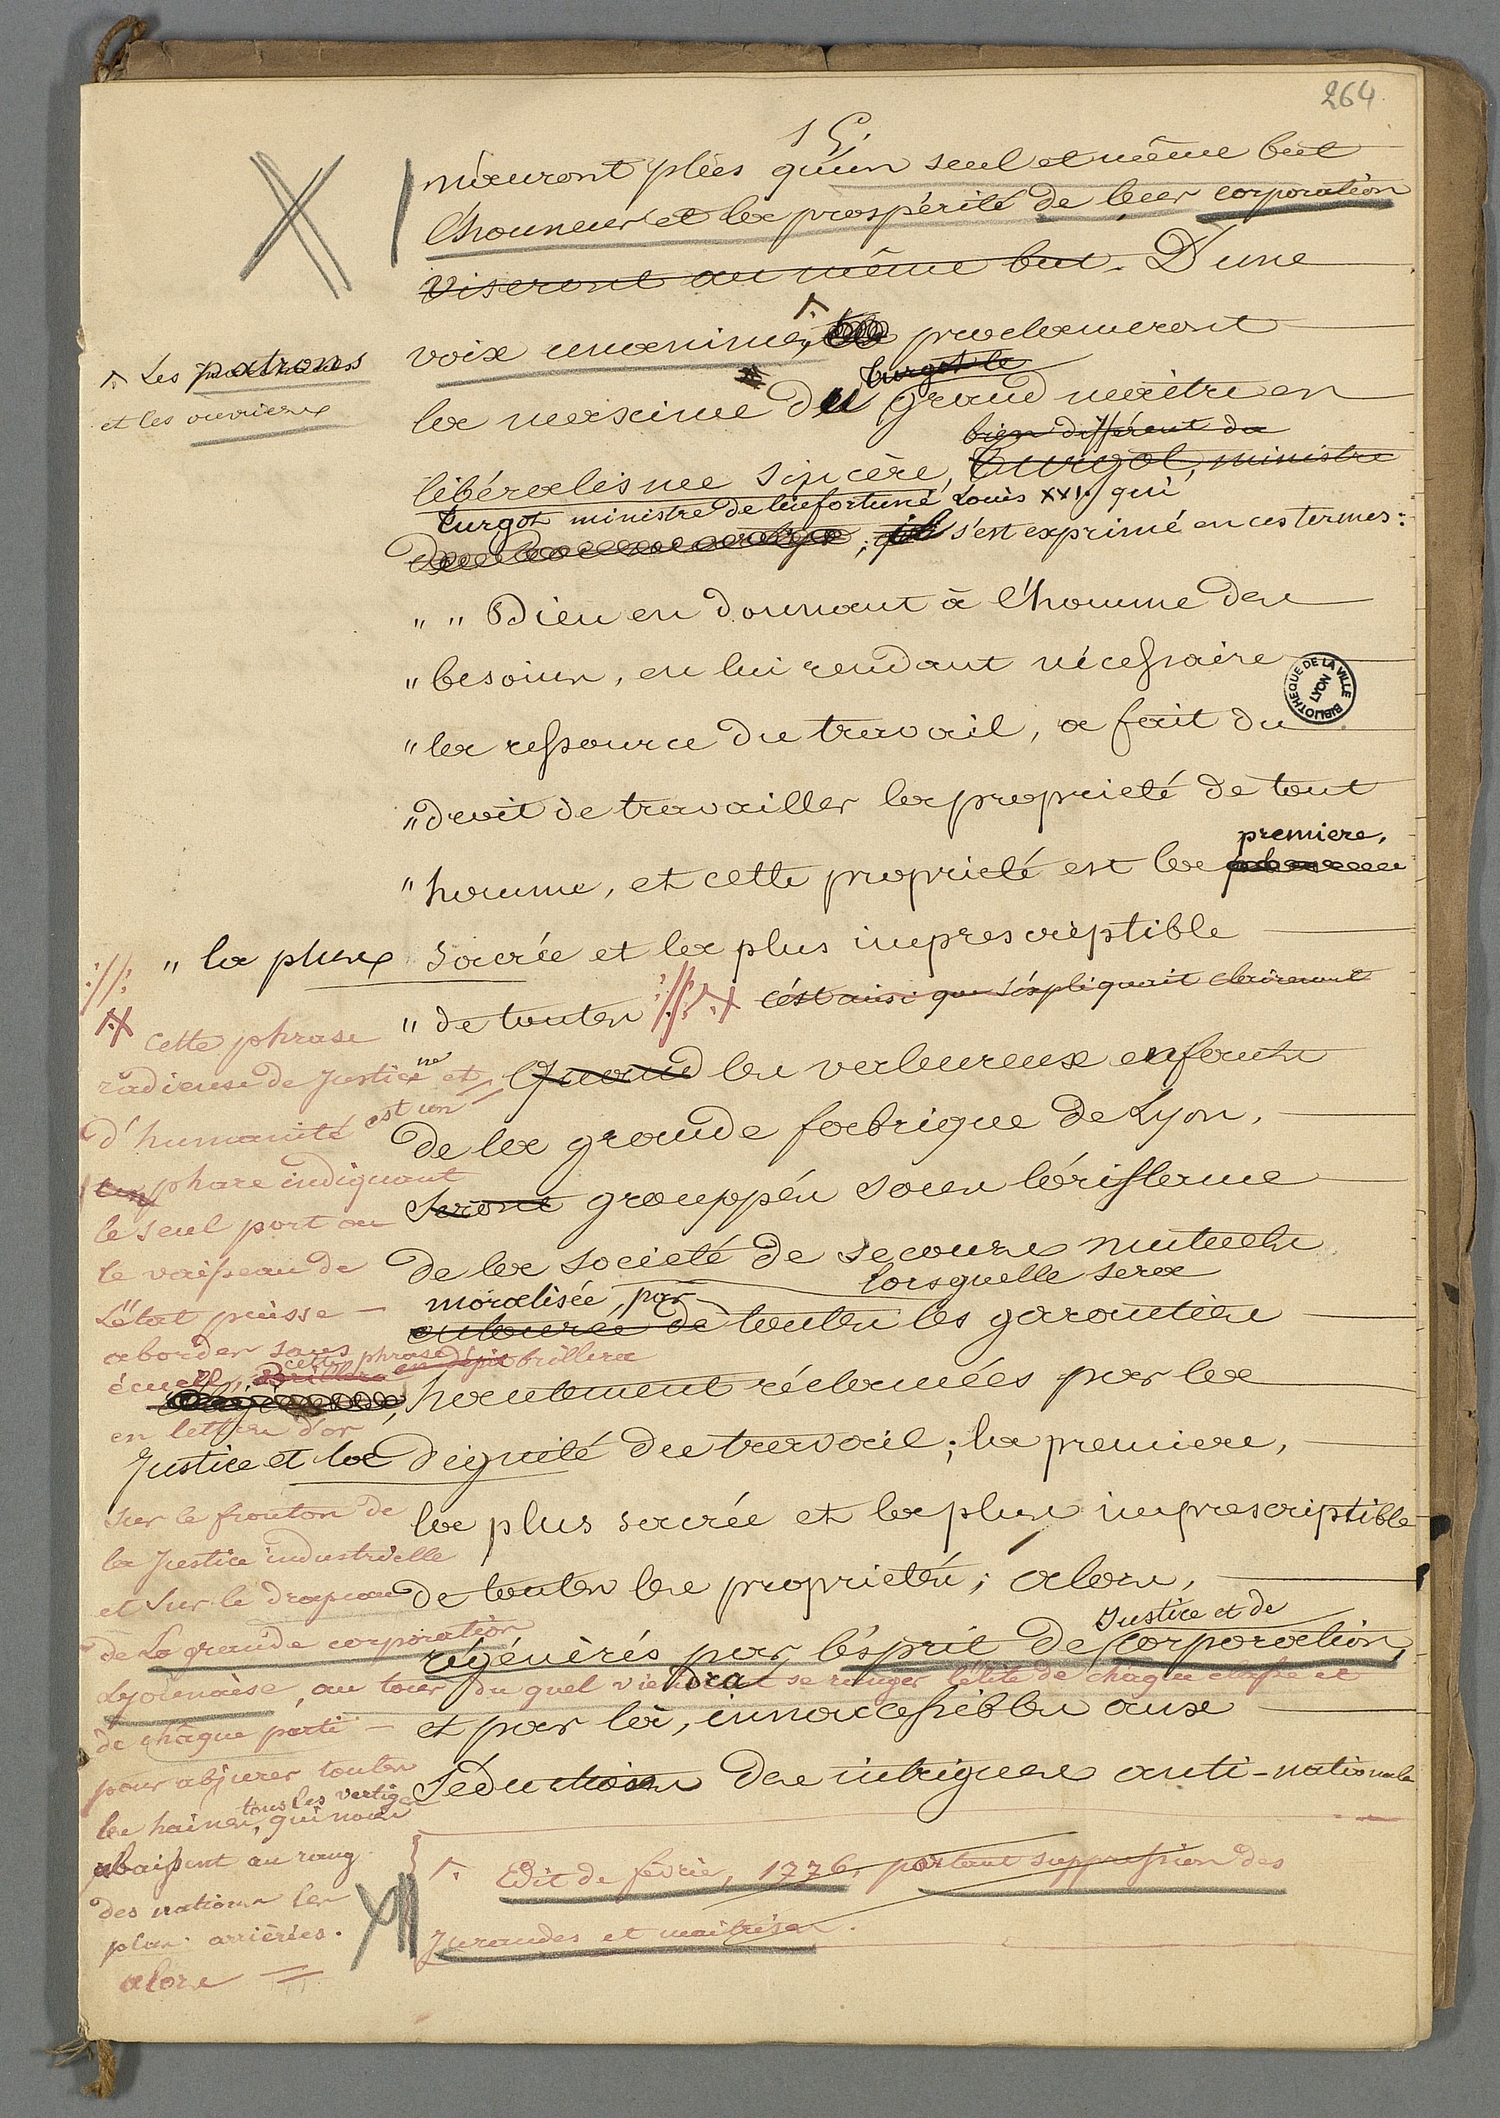 264
n'auront plus qu'un seul et même but
l'honneur et la prospérité de leur corporation
viseront au même but. D'une
voix unanime, proclameront
^. Les patrons
et les ouvriers
turgot le
la maxime du grand maître en
bien différent du
libéralisme sincère, turgot, ministre
turgot ministre de l'infortuné Louis XVI, qui
s'est exprimé en ces termes:
" " Dieu en donnant à l'homme des
" besoins, en lui rendant nécessaire
BIBLIOTHEQUE DE LA VILLE LYON
" la ressource du travail, a fait du
" droit de travailler la proprieté de tout
premiere,
" homme, et cette proprieté est la
" la plus sacrée et la plus imprescriptible
" de toutes c'est ainsi que s'éxpliquait clairement
Quand les valeureux enfants
de la grande fabrique de Lyon,
seront grouppés sous l'oriflame
de la societé de secours mutuels
lorsquelle sera
moralisée, par
entourée de toutes les garanties
hautement réclamées par la
Justice et la dignité du travail; la premiere,
la plus sacrée et la plus imprescriptible
de toutes les proprietés; alors,
Justice et de
régénérés par l'ésprit de corporation,
et par là, innaccessibles aux
séductions des intrigues anti-nationales
cette phrase
radieuse de Justice et
d'humanité est un
un phare indiquant
le seul port ou
le vaisseau de
L'état puisse —
aborder sans
écueil, cette phrase brillera
en lettres d'or
sur le fronton de
la Justice industrielle
et sur le drapeau
de La grande corporation
Lyonnaise, au tour du quel viendra se ranger l'élite de chaque classe et
de châque parti —
pour abjurer toutes
tous les vertiges
les haines, qui nous
abaissent au rang
des nations les
plus arriérées.
alors =
^. Edit de février, 1776, portant suppression des
Jurandes et maitrises.